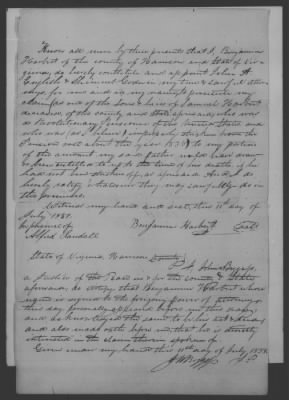 Know all men by these presents that I, Benjamin
Harbert of the county of Harrison and State of Vir
ginia, do hereby constitute and appoint John H
my true & lawful attor
ney, for me and in my name to
my claim as one of the Sons & heirs of Samuel Harbert
deceased of the county and State aforesaid, who was
a Revolutionary pensioner of the United States and
who was (as I believe) improperly stricken from the
Pension roll about the year 1835) to any portion
of the amount my said father would have drawn
to his death if he
had not been stricken off, as aforesaid. And I do
hereby ratify whatsoever they may lawfully do in
the premises.
Witness my hand and seal, this 11th day of
July 1851.
In presence of Benjamin Harbert Seal
Alfred
State of Virginia Harrison County
I,
a Justice of the Peace in & for the county & State
aforesaid, do certify that Benjamin Harbert whose
name is signed to the foregoing power of attorney,
this day personally appeared before me
and acknowledged the same to be his act & deed,
and also made oath before me, that he is directly
interested in the claim therein spoken of.
Given under my hand this 11th day of July 185
J P